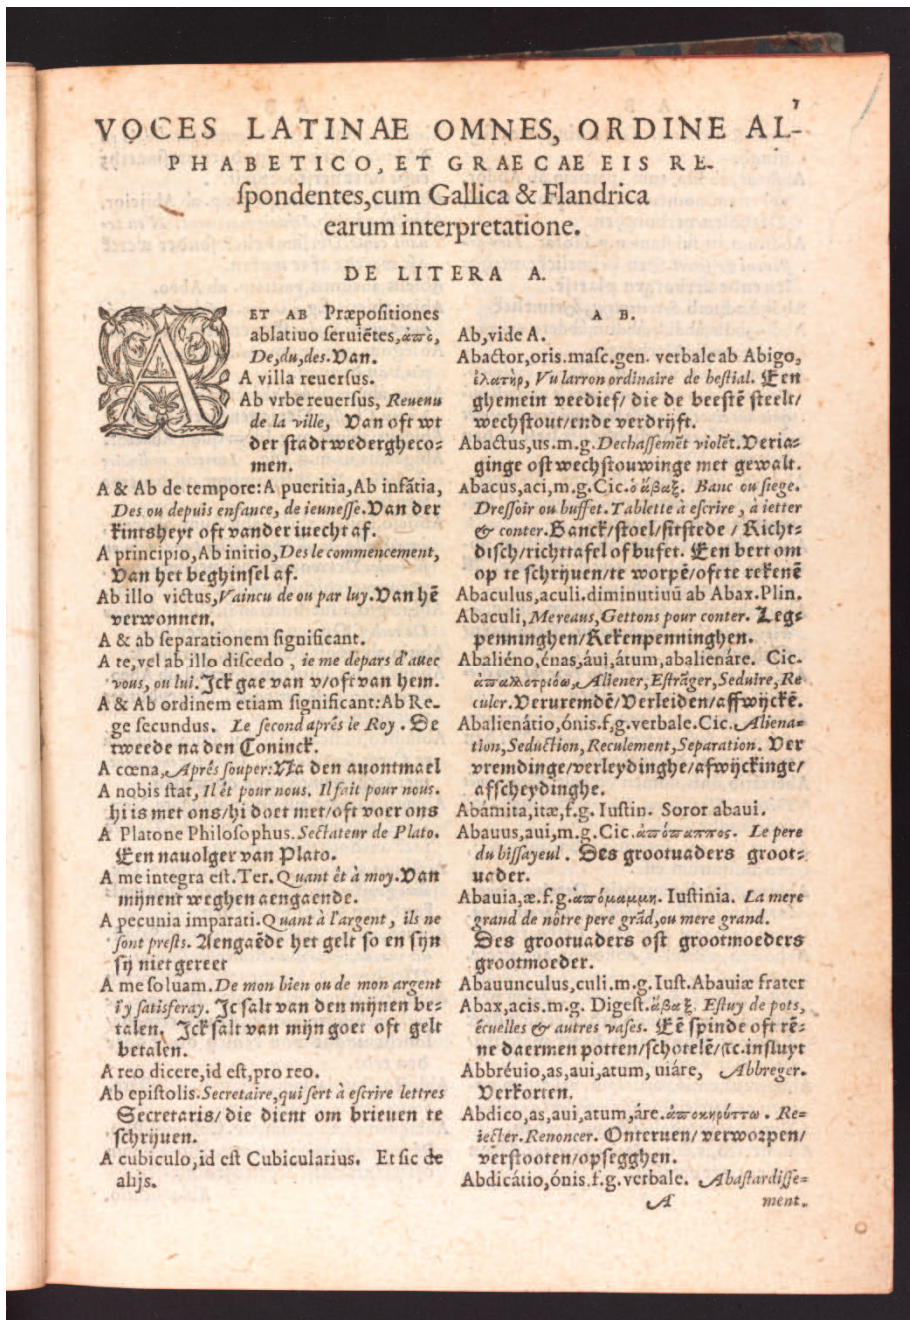 7
VOCES LATINAE OMNES, ORDINE AL-
PHABETICO, ET GRAECAE EIS RE-
ſpondentes,cum Gallica & Flandrica
earum interpretatione.
DE LITERA A.
A ET AB Præpoſitiones
ablatiuo ſeruiẽtes,ἀπὸ,
De,du,des.Van.
A villa reuerſus.
Ab vrbe reuerſus, Reuenu
de la ville, Van oft wt
der ſtadt wedergheco-
men.
A & Ab de tempore: A pueritia,Ab infãtia,
Des ou depuis enfance, de ieuneſſe.Van der
kintsheyt oft vander iuecht af.
A principio,Ab initio,Des le commencement,
Van het beghinſel af.
Ab illo victus,Vaincu de ou par luy.Van hẽ
verwonnen.
A & ab ſeparationem ſignificant.
A te,vel ab illo diſcedo , ie me depars d'auec
vous, ou lui.Jck gae van v/oft van hem.
A & Ab ordinem etiam ſignificant:Ab Re-
ge ſecundus. Le ſecond aprés le Roy . De
tweede na den Coninck.
A cœna,Aprés ſouper:Na den auontmael
A nobis ſtat, Il ét pour nous. Il fait pour nous.
hi is met ons/hi doet met/oft voer ons
A Platone Philoſophus.Sectateur de Plato.
Een nauolger van Plato.
A me integra eſt.Ter.Quant ét à moy.Van
mijnent weghen aengaende.
A pecunia imparati.Quant à l'argent, ils ne
ſont preſts. Aengaẽde het gelt ſo en ſijn
ſij niet gereet
A me ſoluam.De mon bien ou de mon argent
i'y ſatisferay. Jc ſalt van den mijnen be-
talen. Jck ſalt van mijn goet oft gelt
betalen.
A reo dicere,id eſt,pro reo.
Ab epiſtolis.Secretaire,qui ſert à eſcrire lettres
Secretaris/ die dient om brieuen te
ſchrijuen.
A cubiculo,id eſt Cubicularius. Et ſic de
alijs.
A B.
Ab,vide A.
Abactor,oris.maſc.gen. verbale ab Abigo,
ἐλατὴρ, Vu larron ordinaire de beſtial. Een
ghemein veedief/ die de beeſtẽ ſteelt/
wechſtout/ende verdrijft.
Abactus,us.m.g.Dechaſſemẽt violẽt.Veria-
ginge oft wechſtouwinge met gewalt.
Abacus,aci,m.g.Cic.ὁ ἄβαξ. Banc ou ſiege.
Dreſſoir ou buffet.Tablette à eſcrire, à ietter
& conter.Banck/ſtoel/ſitſtede / Richt-
diſch/richttafel of bufet. Een bert om
op te ſchrijuen/te worpẽ/oft te rekenẽ
Abaculus,aculi.diminutiuũ ab Abax.Plin.
Abaculi,Mereaus,Gettons pour conter. Leg-
penninghen/Rekenpenninghen.
Abaliéno,énas,áui,átum,abalienáre. Cic.
ἀπαλλοτριόω,Aliener,Eſtrãger,Seduire,Re
culer.Veruremdẽ/Verleiden/affwijckẽ.
Abalienátio,ónis.f,g.verbale.Cic.Aliena-
tion,Seduction,Reculement,Separation. Ver
vremdinge/verleydinghe/afwijckinge/
afſcheydinghe.
Abámita,itæ,f.g. Iuſtin. Soror abaui.
Abauus,aui,m.g.Cic.ἀπόπαππος. Le pere
du biſſayeul. Des grootuaders groot-
uader.
Abauia,æ.f.g.ἀπόμαμμη. Iuſtinia. La mere
grand de nôtre pere grãd,ou mere grand.
Des grootuaders oft grootmoeders
grootmoeder.
Abauunculus,culi.m.g.Iuſt.Abauiæ frater
Abax,acis.m.g. Digeſt.ἄβαξ. Eſtuy de pots,
écuelles & autres vaſes. Eẽ ſpinde oft rẽ-
ne daermen potten/ſchotelẽ/&c.inſluyt
Abbréuio,as,aui,atum, uiáre, Abbreger.
Verkorten.
Abdico,as,aui,atum,áre.ἀποκηρύττω. Re-
iecter.Renoncer. Onteruen/verworpen/
verſtooten/opſegghen.
Abdicátio,ónis.f.g.verbale. Abaſtardiſſe-
A ment.